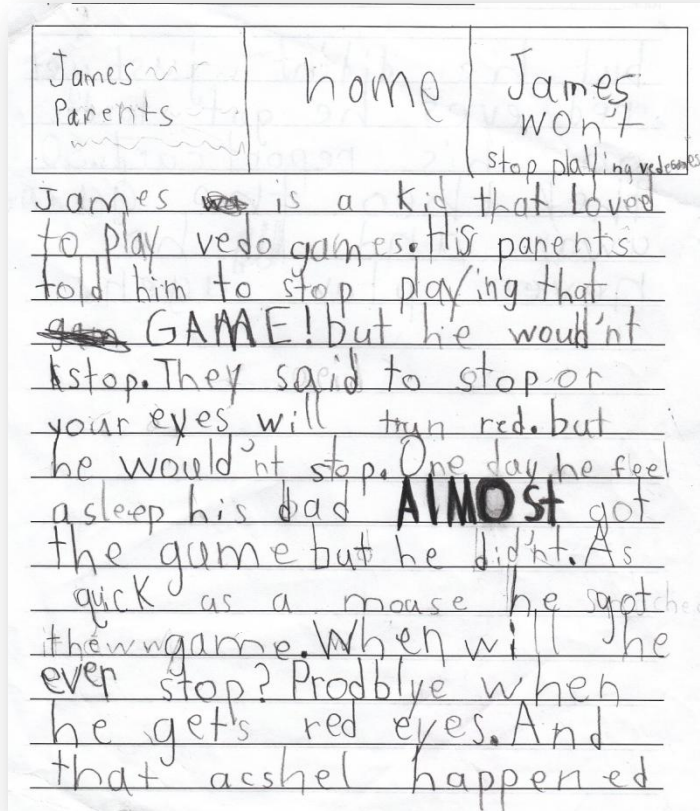 James
Parents
home
James
won't
stop playing vedogames
James is a kid that loved
to play vedo games. His parents
told him to stop playing that
GAME! but he woud'nt
stop. They said to stop or
your eyes will trun red. but
he would'nt stop. One day he feel
asleep his dad AlMOSt got
the game but he did'nt. As
quick as a mouse he got
the game. When will he
ever stop? Prodblye when
he get's red eyes. And
that acshel happened